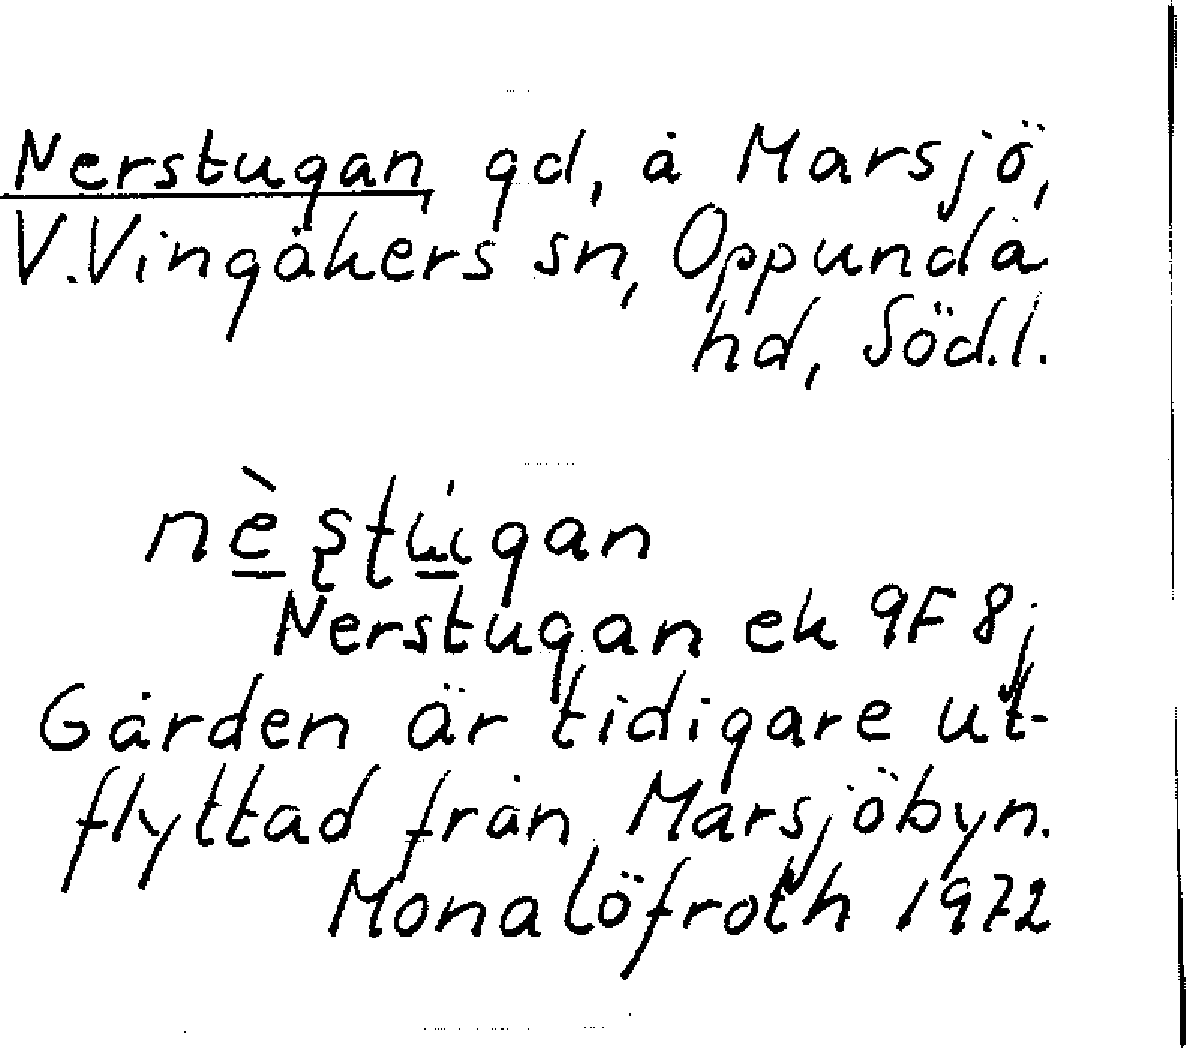 Nerstugan, gd, å Marsjö,
V.Vingåkers sn, Oppunda
hd, Söd.l.
Nerstugan ek 9F 8j
Gården är tidigare ut-
flyttad från Marsjöbyn.
Mona Löfroth 1972